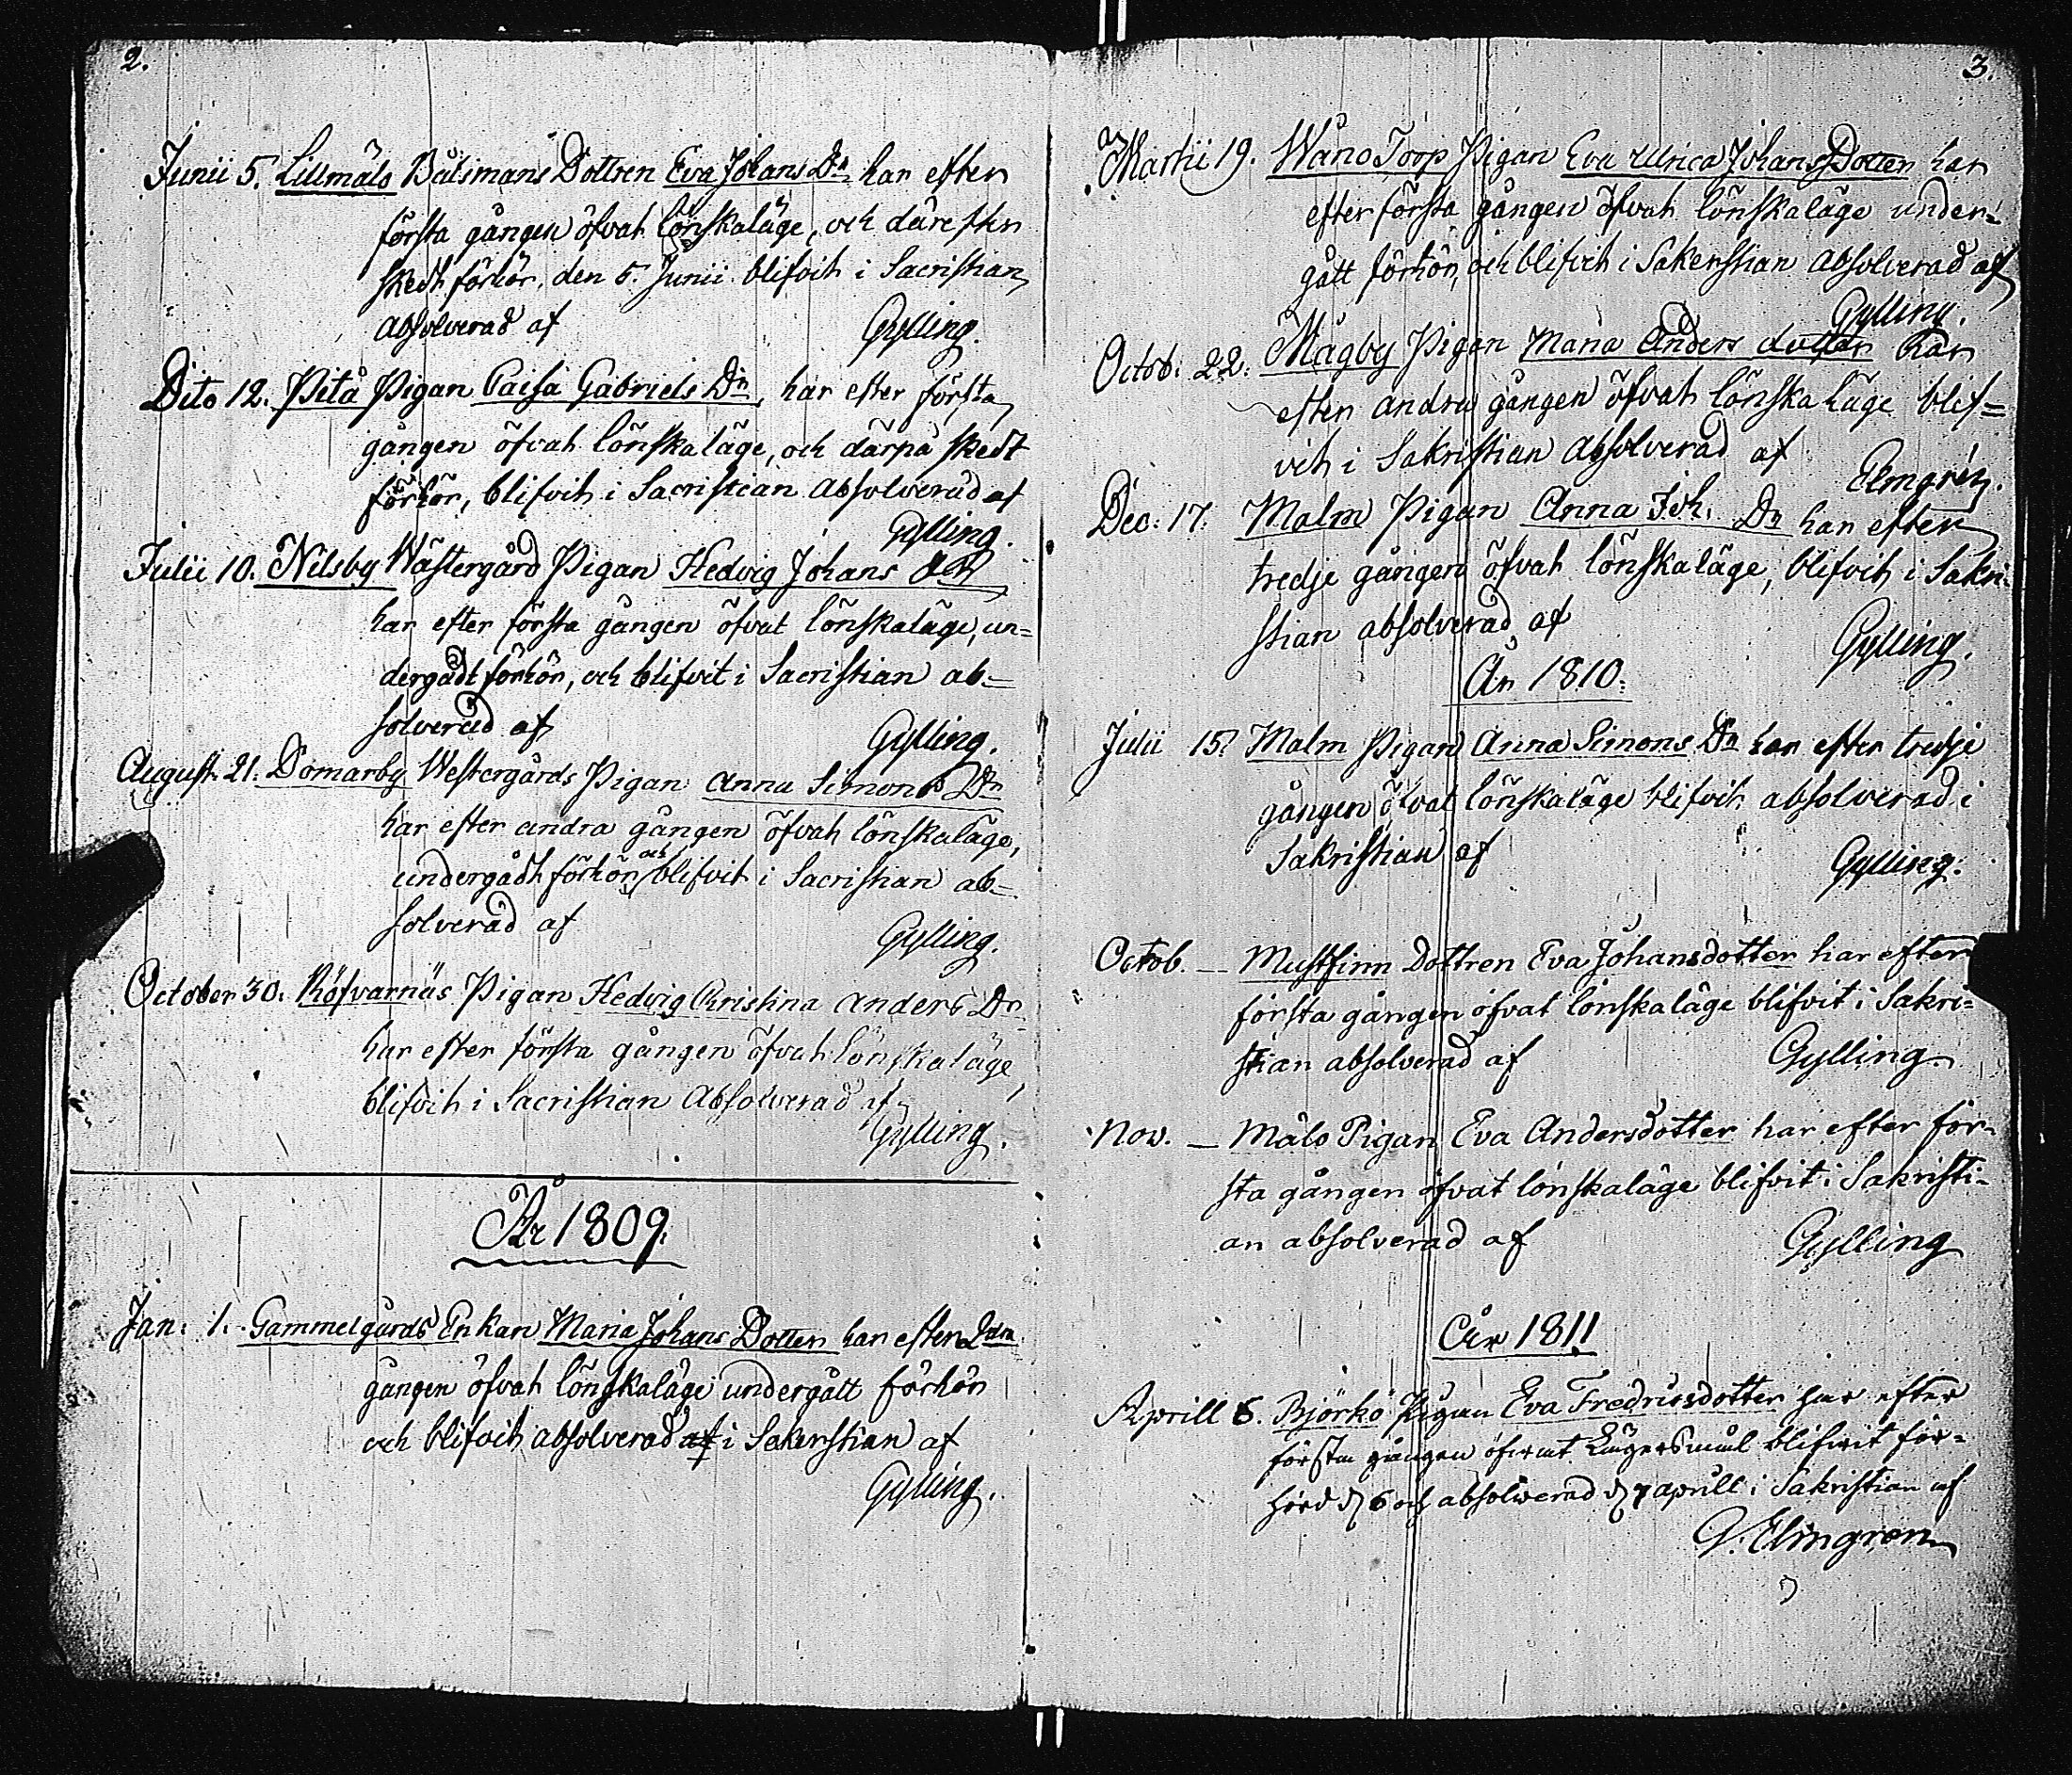 2.
Junii 5. Lillmälö Båtsmans Dottren Eva Johans Dr har efter
första gången öfvat lönskaläge, och därefter
skedt förhör, den 5. Junii blifvit i Sacristian
absolverad af Gylling.
Dito 12. Pitå Pigan Caisa Gabriels Dr har efter första
gången öfvat lönskaläge, och därpå skedt
förhör, blifvit i Sacristian absolverad af
Gylling.
Julii 10. Nilsby Wästergård Pigan Hedvig Johans dr
har efter första gången öfvat lönskaläge, un=
dergådt förhör, och blifvit i Sacristian ab=
solverad af Gylling.
August. 21. Domarby Westergårds Pigan Anna Simons Dr
har efter andra gången öfvat lönskaläge,
undergådt förhör och blifvit i Sacristian ab=
solverad af Gylling.
October 30. Röfvarnäs Pigan Hedvig Christina Anders Dr
har efter första gången öfvat lönskaläge,
blifvit i Sacristian Absolverad af
Gylling.
År 1809.
Jan: 1. Gammelgårds Enkan Maria Johans Dotter har efter 2dra
gången öfvat lönskaläge undergått förhör
och blifvit absolverad af i Sakerstian af
Gylling.
3.
Martii 19. Wåno Torp Pigan Eva Ulrica Johans Dotter har
efter första gången öfvat lönskaläge under=
gått förhör, och blifvit i Sakerstian absolverad af
Gylling.
Octob: 22. Mågby Pigan Maria Anders dotter har
efter andra gången öfvat lönskaläge blif=
vit i Sakristian absolverad af Elmgrén.
Dec: 17. Malm Pigan Anna Joh. Dr har efter
tredje gången öfvat lönskaläge, blifvit i Sakri=
stian absolverad af Gylling.
År 1810.
Julii 15. Malm Pigan Anna Simons Dr har efter tredje
gången öfvat lönskaläge blifvit absolverad i
Sakristian af Gylling.
Octob. — Mustfinn Dottren Eva Johansdotter har efter
första gången öfvat lönskaläge blifvit i Sakri=
stian absolverad af Gylling
Nov. — Målo Pigan Eva Andersdotter har efter för=
sta gången öfvat lönskaläge blifvit i Sakristi=
an absolverad af Gylling
År 1811
Aprill 6. Björkö Pigan Eva Fredricsdotter har efter
första gången öfwat Lägersmål blifwit för=
hörd d 6 och absolwerad d 7 aprill i Sakristian af
G. Elmgren